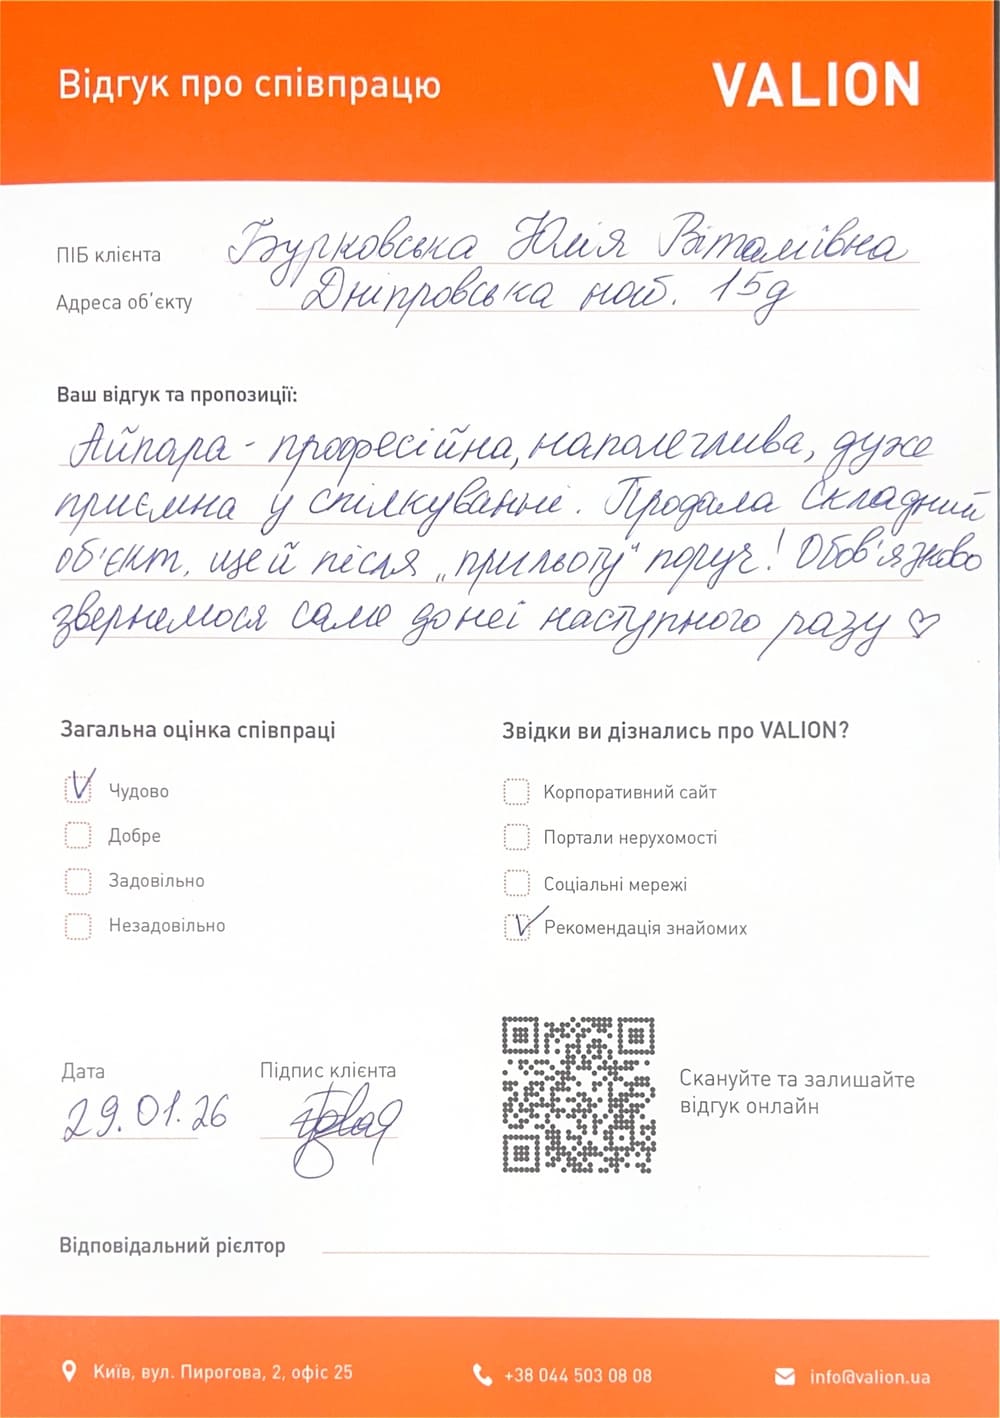 Відгук про співпрацю
VALION
ПІБ клієнта Бурковська Юлія Віталіївна
Адреса об'єкту Дніпровська наб. 15д
Ваш відгук та пропозиції:
Айпара - професійна, наполеглива, дуже
приємна у спілкуванні. Продала складний
об'єкт, ще й після „прильоту" поруч! Обов'язково
звернемося саме до неї наступного разу ♡
Загальна оцінка співпраці
Чудово
Добре
Задовільно
Незадовільно
Звідки ви дізнались про VALION?
Корпоративний сайт
Портали нерухомості
Соціальні мережі
Рекомендація знайомих
Дата
29.01.26
Підпис клієнта
Скануйте та залишайте
відгук онлайн
Відповідальний рієлтор
Київ, вул. Пирогова, 2, офіс 25
+38 044 503 08 08
info@valion.ua